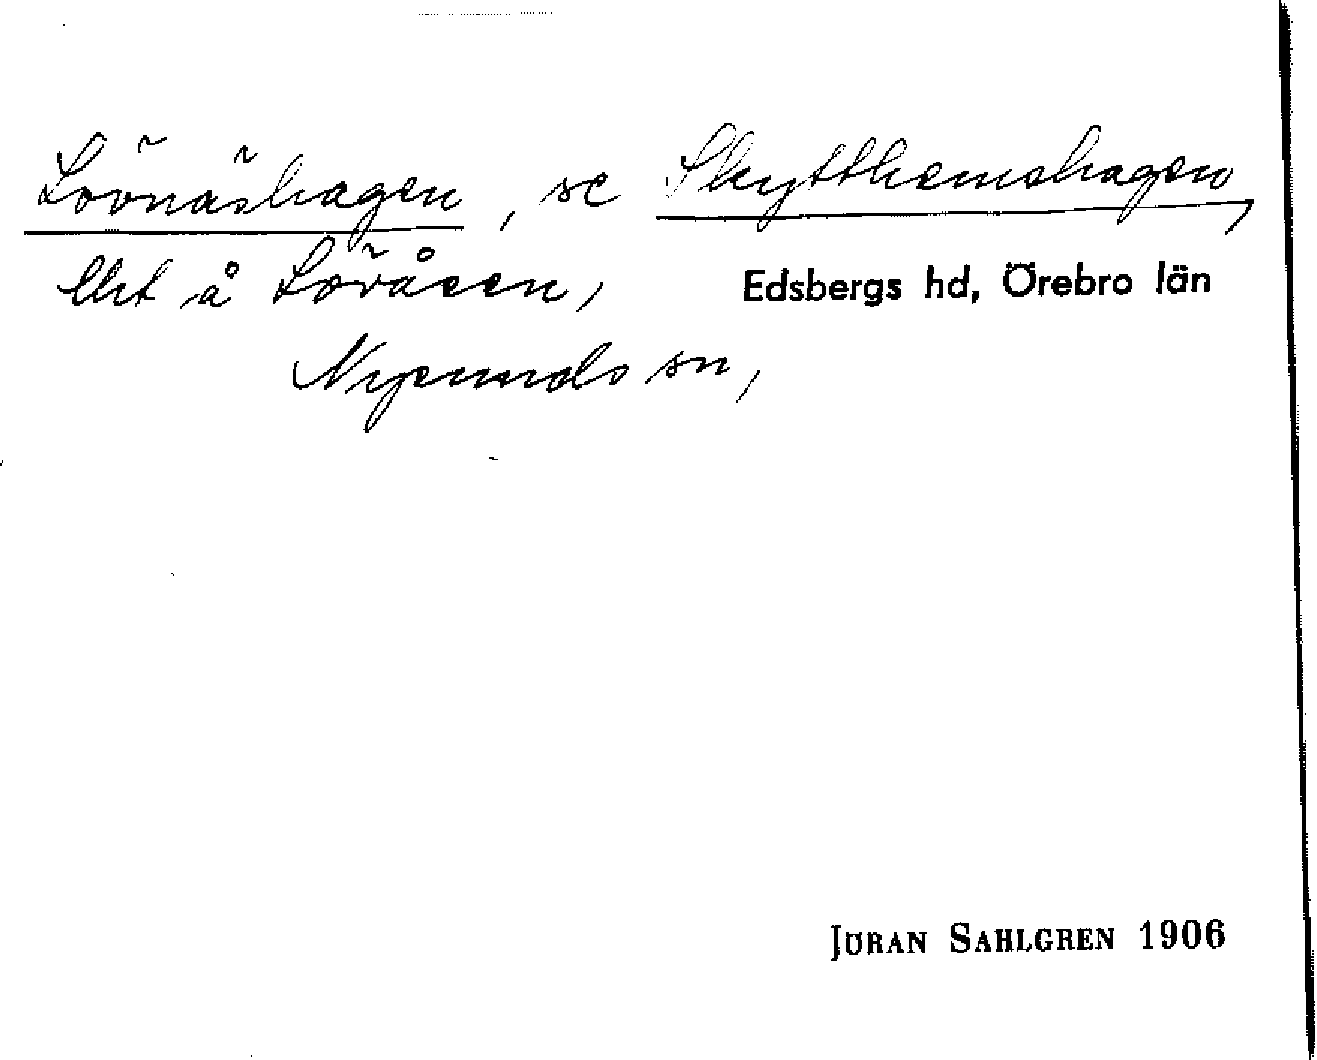 Lövnäshagen, se Skytthemshagen,
lht å Lövåsen, Edsbergs hd, Örebro län
Nysunds sn,
JÖRAN SAHLGREN 1906